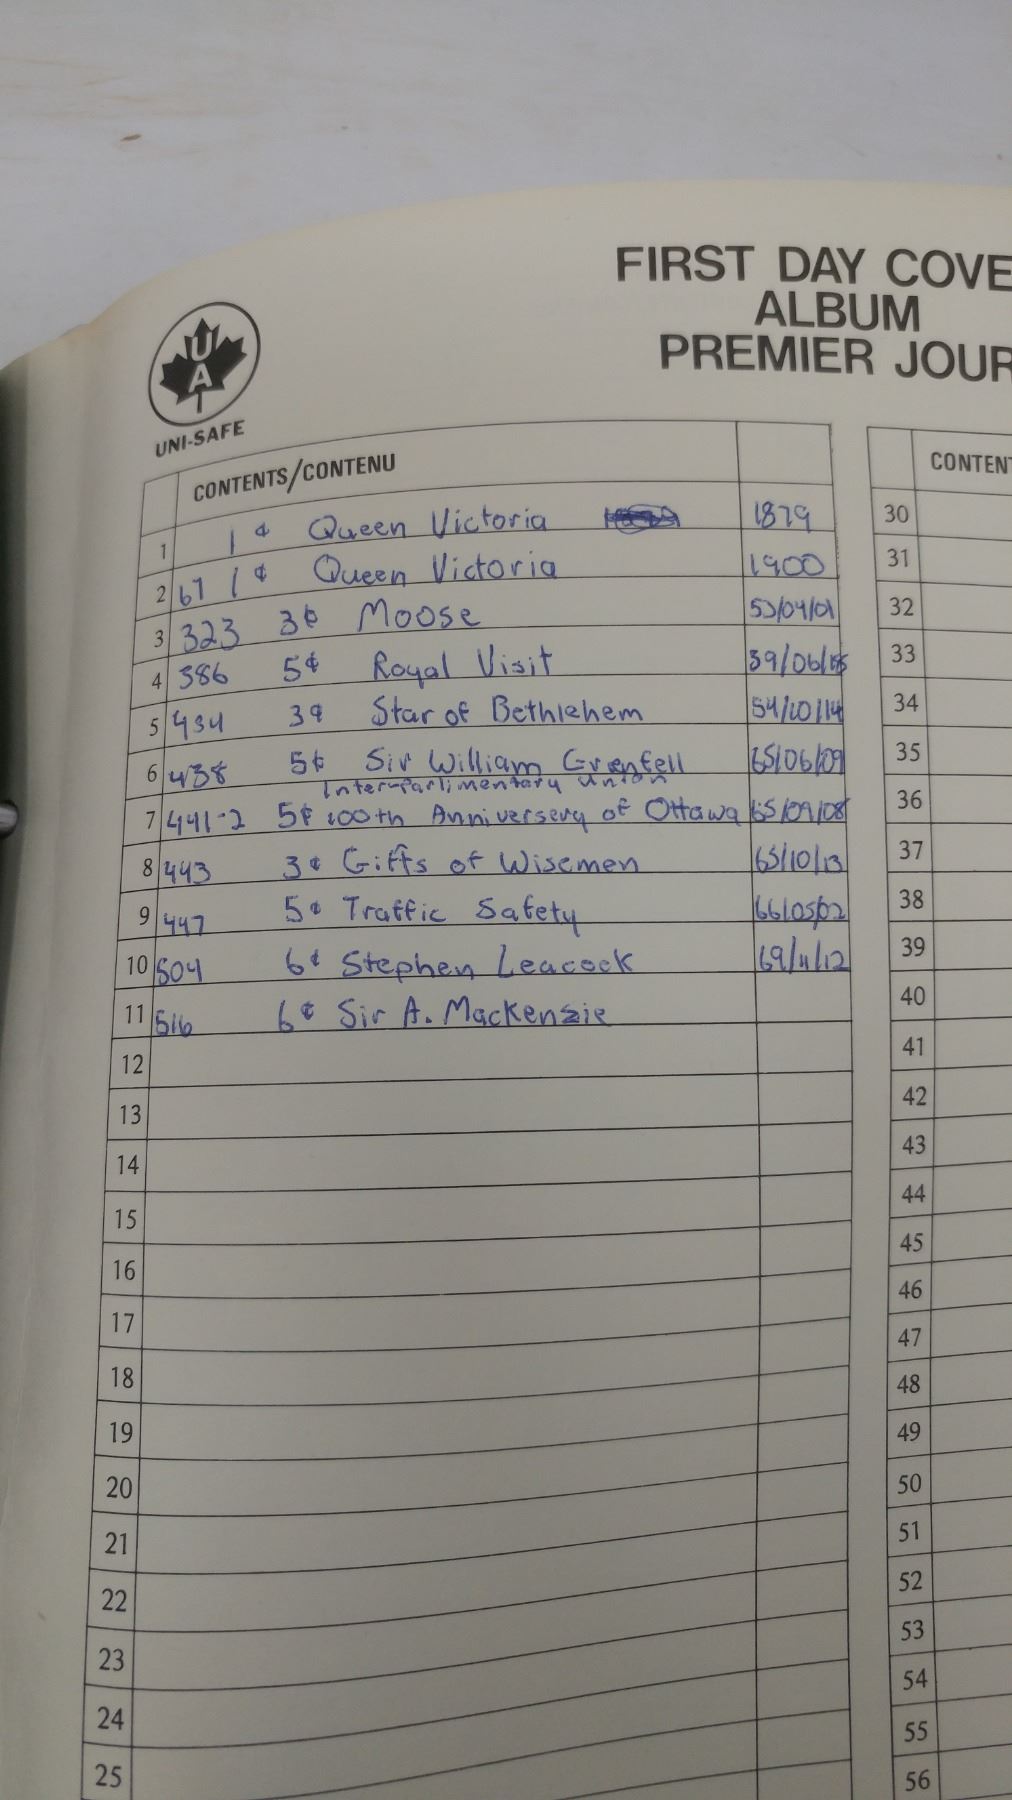 FIRST DAY COVE
ALBUM
PREMIER JOUR
U
A
UNI-SAFE
CONTENTS/CONTENU
1 1¢ Queen Victoria 1879
2 67 1¢ Queen Victoria 1900
3 323 3¢ Moose 53/04/01
4 386 5¢ Royal Visit 39/06/
5 434 3¢ Star of Bethlehem 54/10/14
6 438 5¢ Sir William Grenfell 65/06/09
Inter-parlimentary Union
7 441-2 5¢ 100th Anniversery of Ottawa 65/09/08
8 443 3¢ Gifts of Wisemen 65/10/13
9 447 5¢ Traffic Safety 66/05/02
10 504 6¢ Stephen Leacock 69/11/12
11 516 6¢ Sir A. Mackenzie
12
13
14
15
16
17
18
19
20
21
22
23
24
25
CONTEN
30
31
32
33
34
35
36
37
38
39
40
41
42
43
44
45
46
47
48
49
50
51
52
53
54
55
56